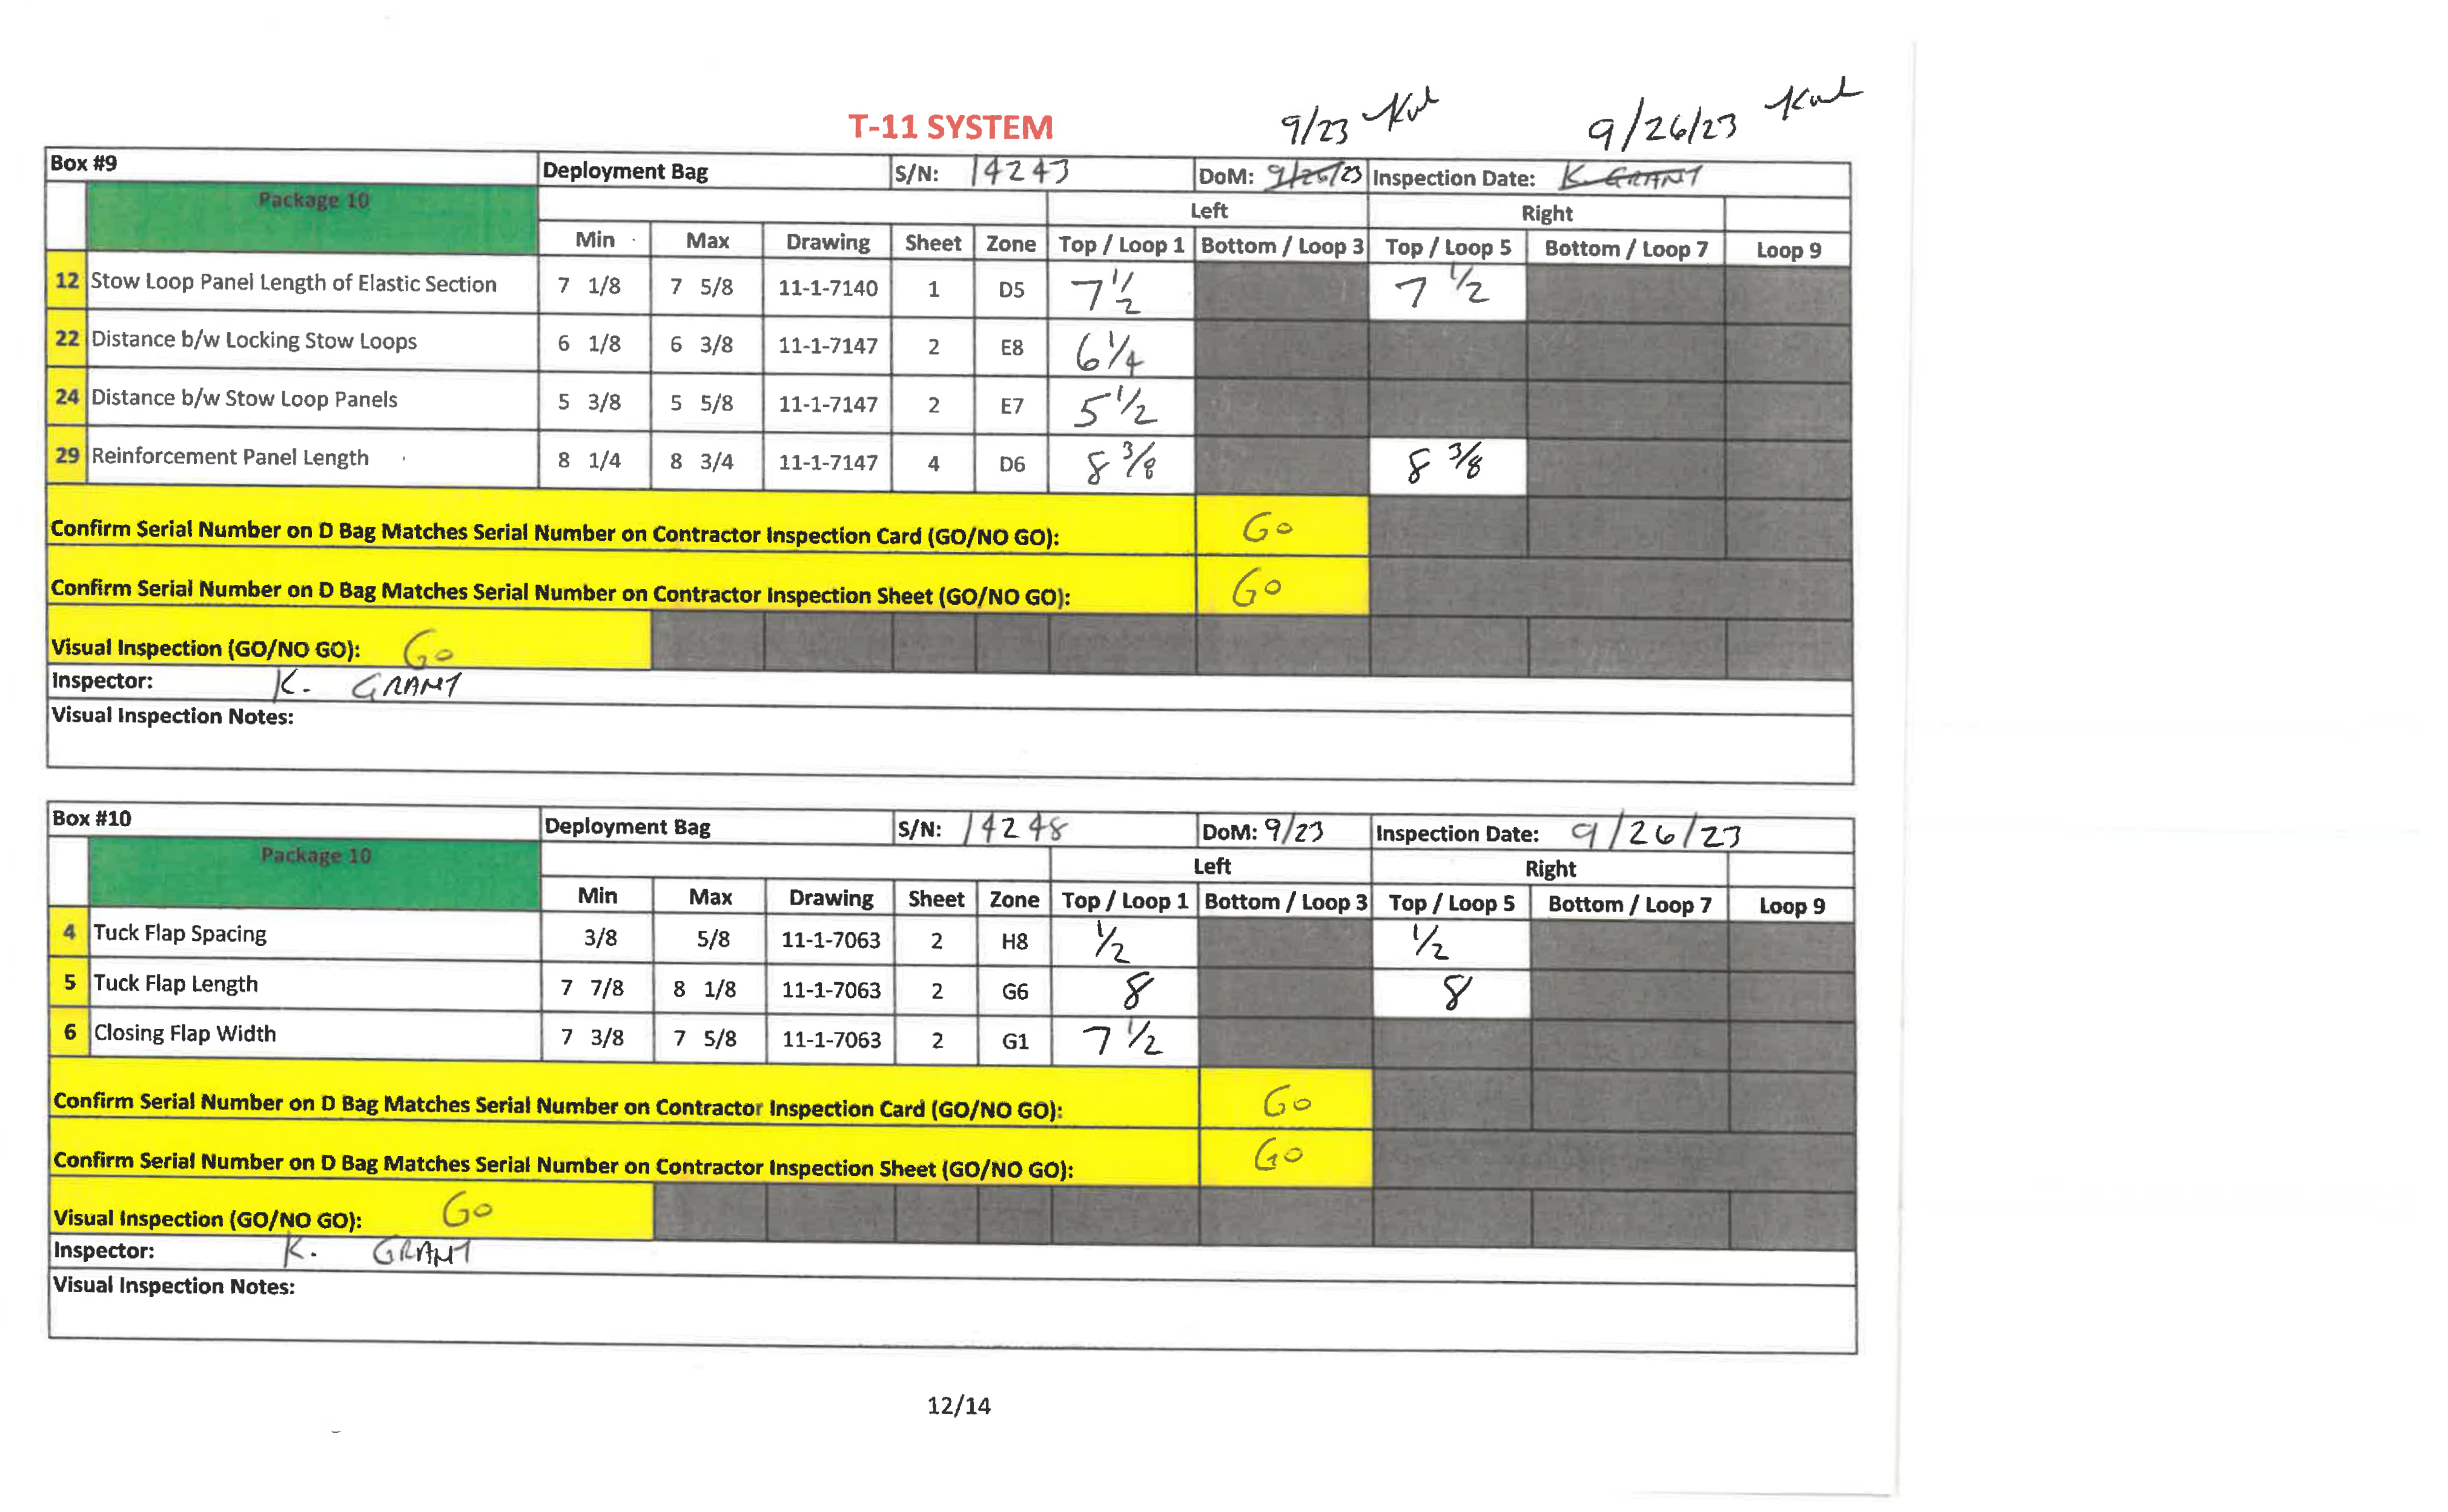 T-11 SYSTEM
9/23
9/26/23
Box #9 Deployment Bag S/N: 14243 DoM: 9/26/23 Inspection Date: K. GRANT
Package 10 Left Right
Min Max Drawing Sheet Zone Top / Loop 1 Bottom / Loop 3 Top / Loop 5 Bottom / Loop 7 Loop 9
12 Stow Loop Panel Length of Elastic Section 7 1/8 7 5/8 11-1-7140 1 D5 7 1/2 7 1/2
22 Distance b/w Locking Stow Loops 6 1/8 6 3/8 11-1-7147 2 E8 6 1/4
24 Distance b/w Stow Loop Panels 5 3/8 5 5/8 11-1-7147 2 E7 5 1/2
29 Reinforcement Panel Length 8 1/4 8 3/4 11-1-7147 4 D6 8 3/8 8 3/8
Confirm Serial Number on D Bag Matches Serial Number on Contractor Inspection Card (GO/NO GO): Go
Confirm Serial Number on D Bag Matches Serial Number on Contractor Inspection Sheet (GO/NO GO): Go
Visual Inspection (GO/NO GO): Go
Inspector: K. GRANT
Visual Inspection Notes:
Box #10 Deployment Bag S/N: 14248 DoM: 9/23 Inspection Date: 9/26/23
Package 10 Left Right
Min Max Drawing Sheet Zone Top / Loop 1 Bottom / Loop 3 Top / Loop 5 Bottom / Loop 7 Loop 9
4 Tuck Flap Spacing 3/8 5/8 11-1-7063 2 H8 1/2 1/2
5 Tuck Flap Length 7 7/8 8 1/8 11-1-7063 2 G6 8 8
6 Closing Flap Width 7 3/8 7 5/8 11-1-7063 2 G1 7 1/2
Confirm Serial Number on D Bag Matches Serial Number on Contractor Inspection Card (GO/NO GO): Go
Confirm Serial Number on D Bag Matches Serial Number on Contractor Inspection Sheet (GO/NO GO): Go
Visual Inspection (GO/NO GO): Go
Inspector: K. GRANT
Visual Inspection Notes:
12/14